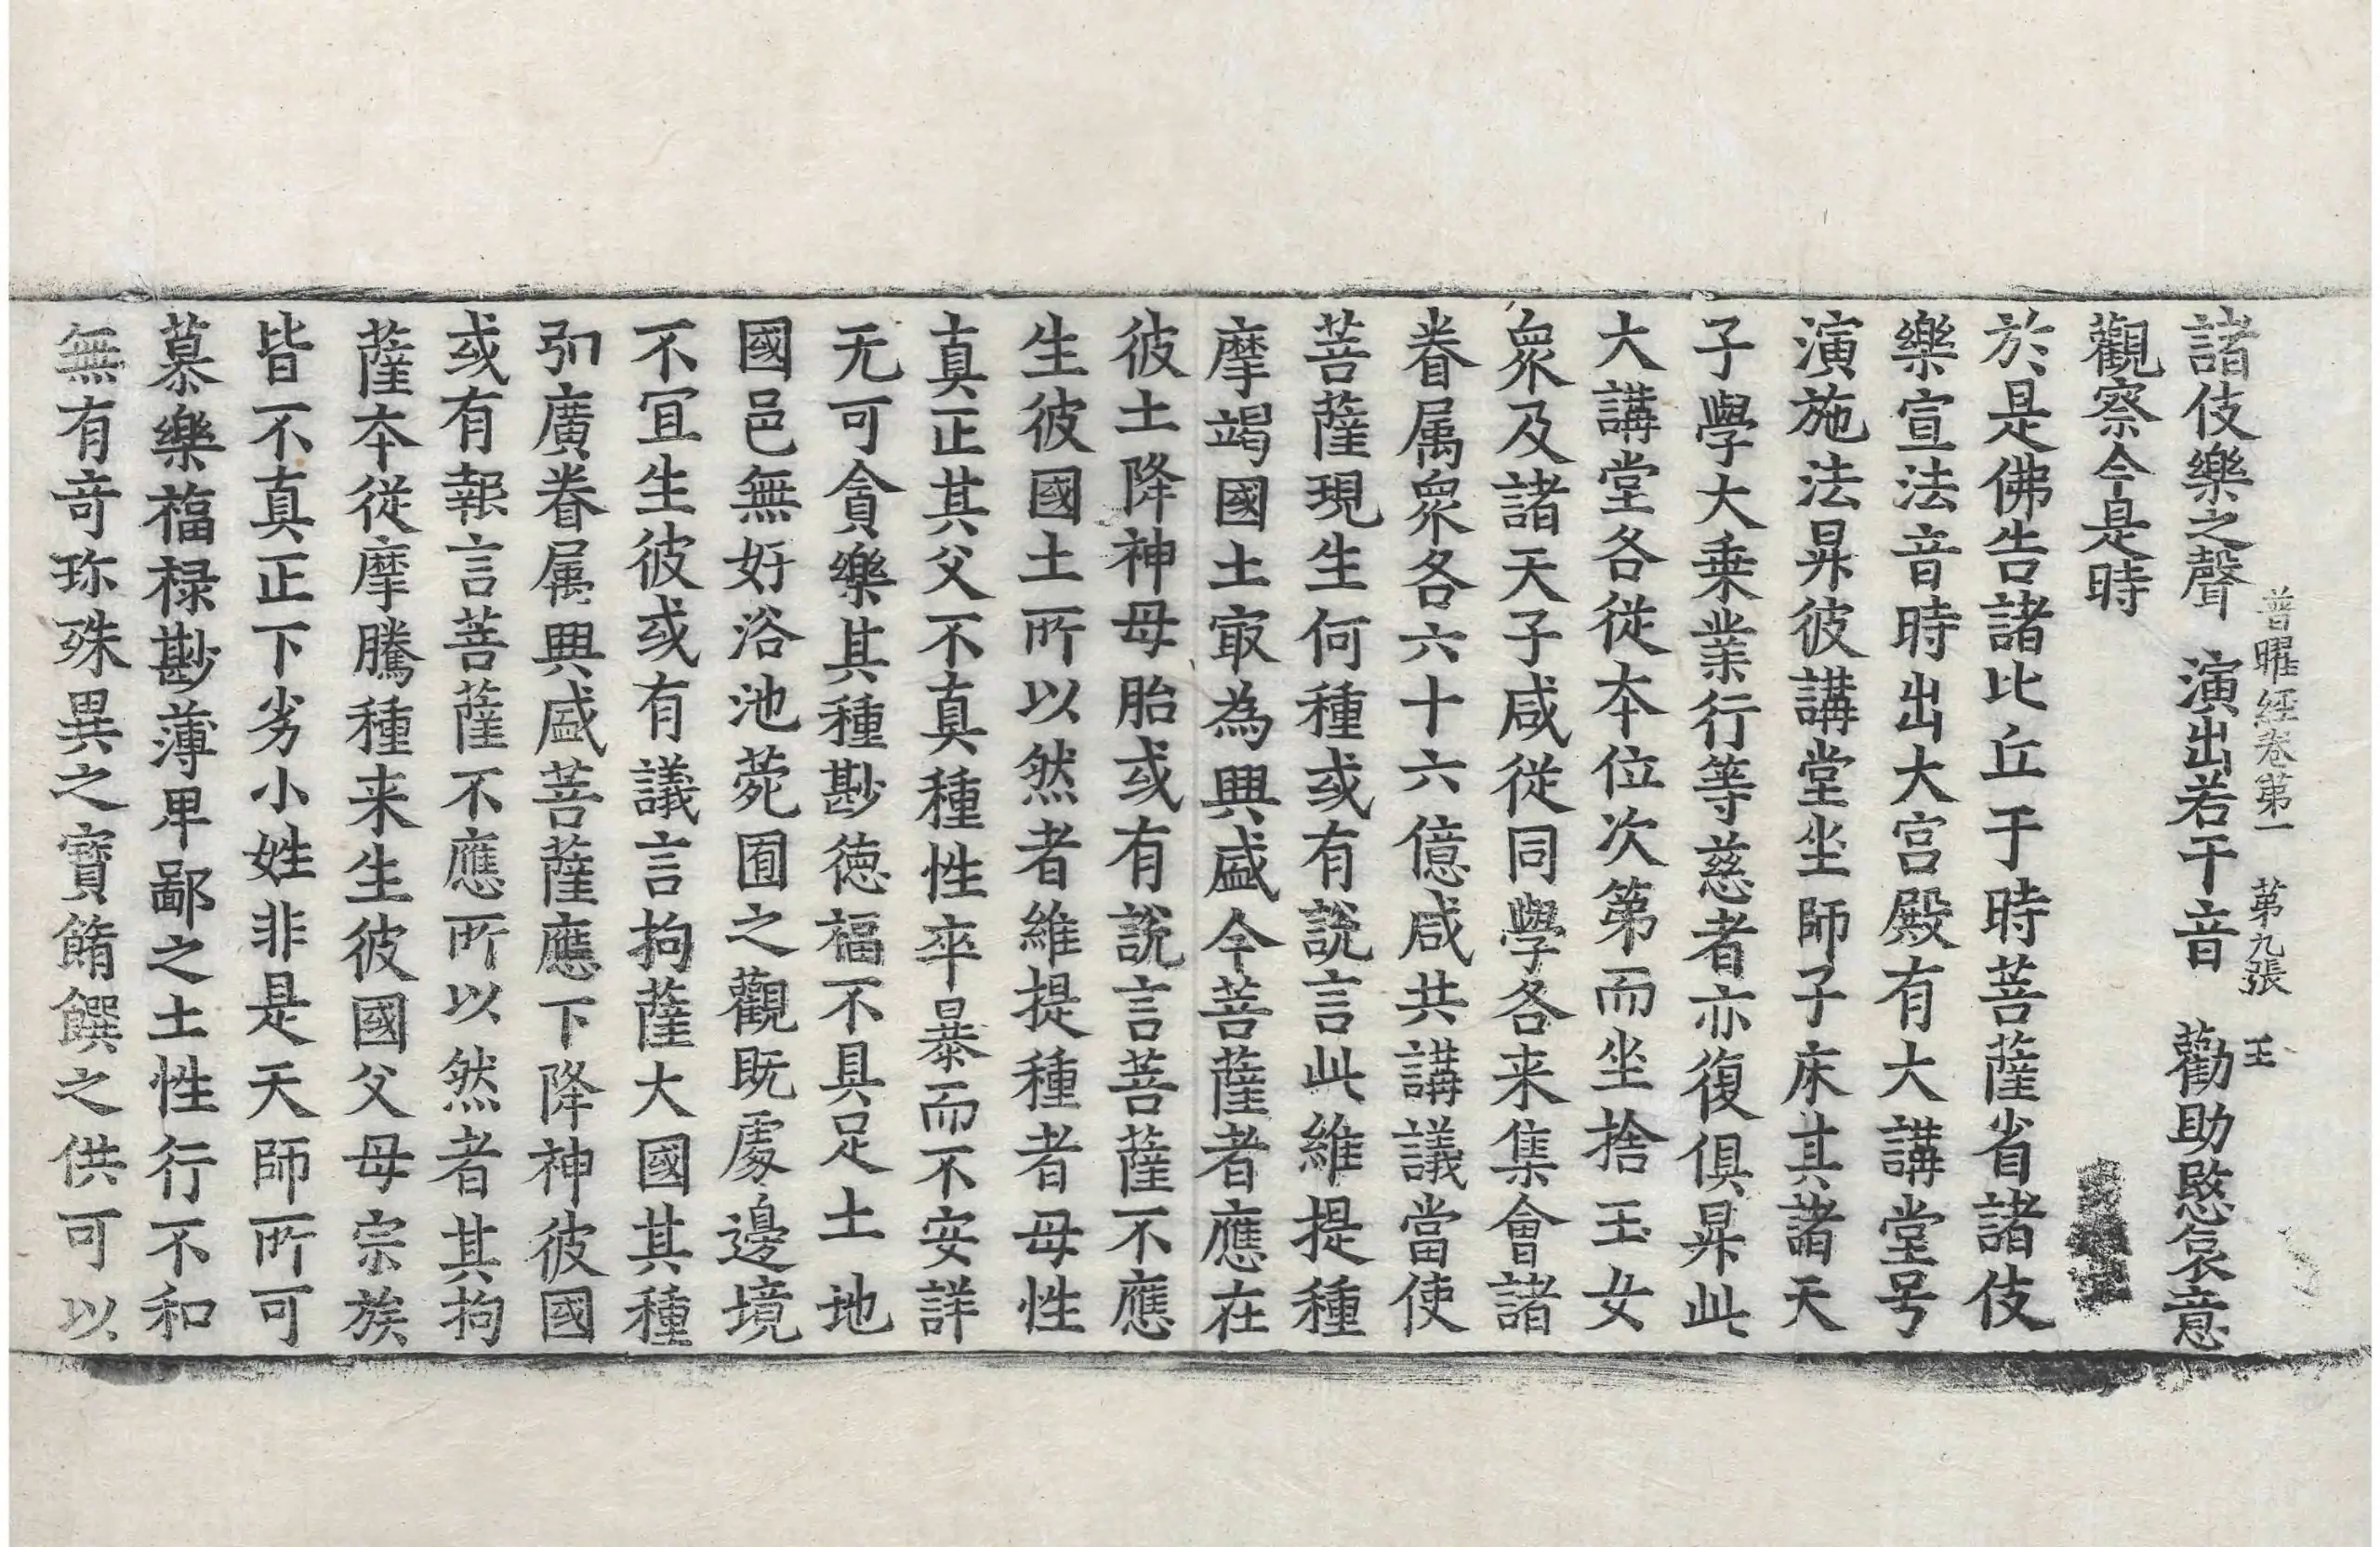 普曜經卷第一 第九張 王
諸伎樂之聲 演出若干音 勸助愍哀意
觀察今是時
於是佛告諸比丘于時菩薩省諸伎
樂宣法音時出大宮殿有大講堂号
演施法昇彼講堂坐師子床其諸天
子學大乗業行等慈者亦復俱昇此
大講堂各從本位次第而坐捨玉女
衆及諸天子咸從同學各来集會諸
眷属衆各六十六億咸共講議當使
菩薩現生何種或有說言此維提種
摩竭國土㝡為興盛今菩薩者應在
彼土降神母胎或有說言菩薩不應
生彼國土所以然者維提種者母性
真正其父不真種性卒暴而不安詳
无可貪樂其種尠德福不具足土地
國邑無好浴池菀囿之觀既處邊境
不宜生彼或有議言拘薩大國其種
引廣眷属興盛菩薩應下降神彼國
或有報言菩薩不應所以然者其拘
薩本從摩騰種来生彼國父母宗族
皆不真正下劣小姓非是天師所可
慕樂福禄尠薄卑鄙之土性行不和
無有奇珎殊異之寶餚饌之供可以